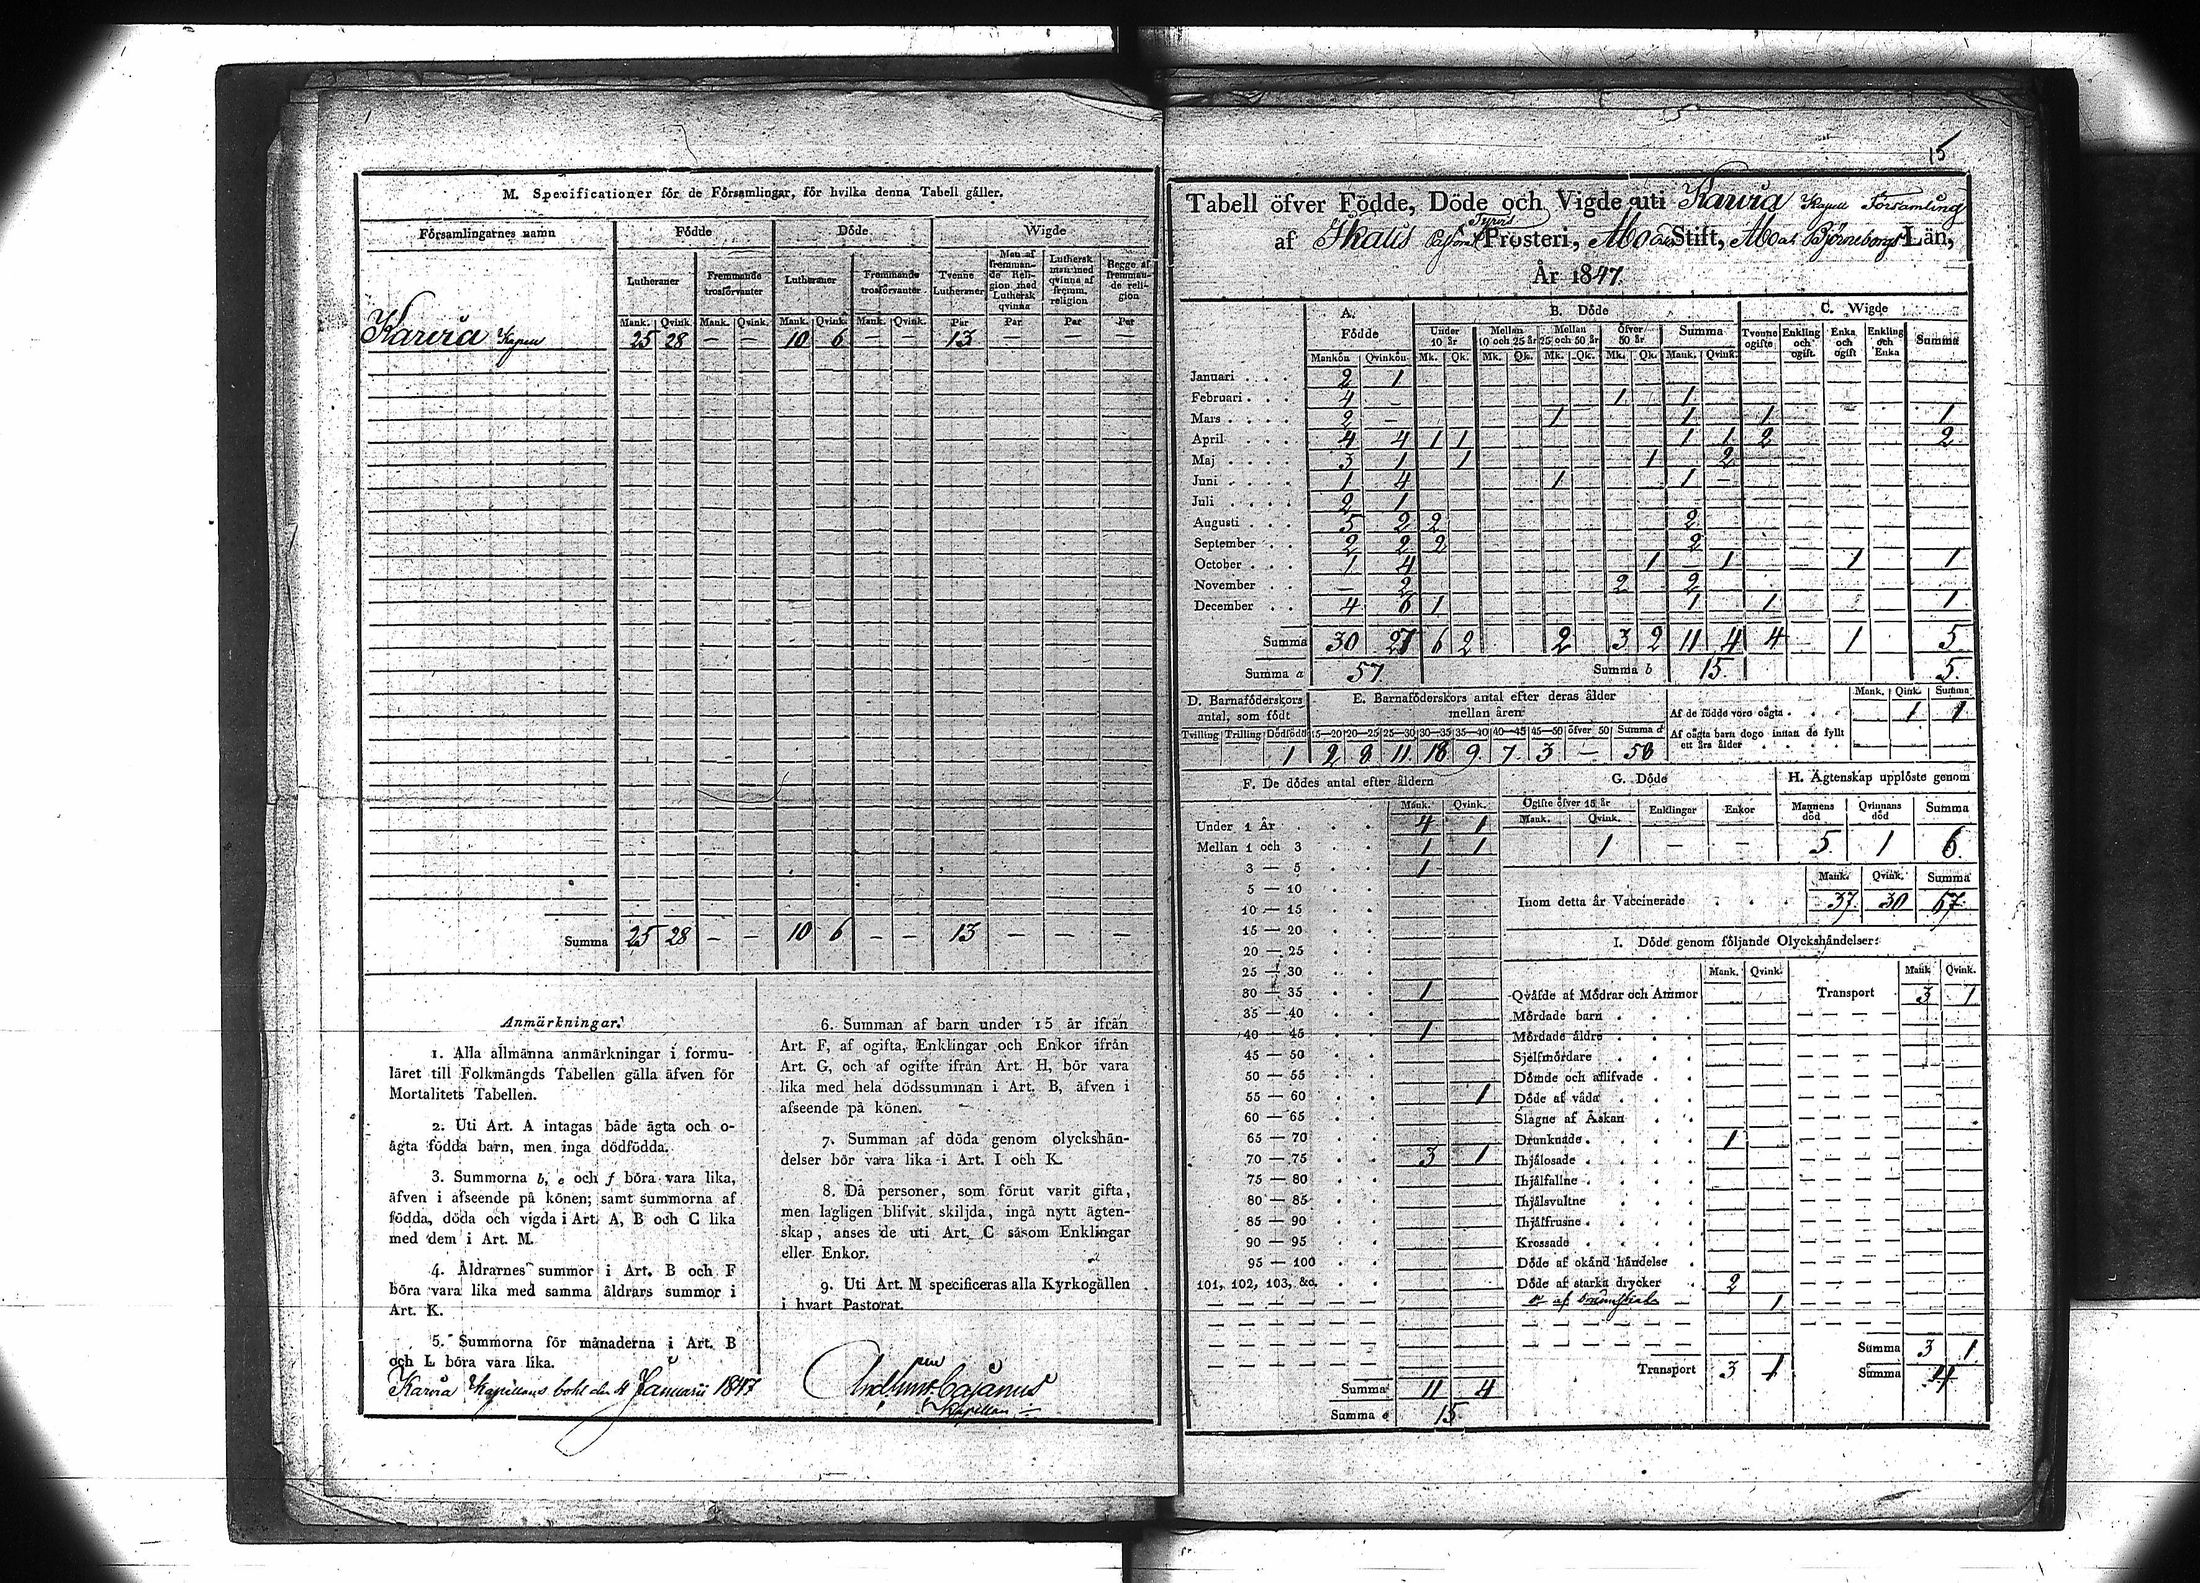 M. Specificationer för de Församlingar, för hvilka denna Tabell gäller.
Församlingarnes namn Födde Döde Wigde
Lutheraner Fremmande trosförvanter Lutheraner Fremmande trosförvanter Tvenne Lutheraner Man af fremmande Religion med Luthersk qvinna Luthersk man med qvinna af fremm. religion Begge af fremmande religion
Mank. Qvink. Mank. Qvink. Mank. Qvink. Mank. Qvink. Par Par Par Par
Karvia Kapell 25 28 — — 10 6 — — 13 — — —
Summa 25 28 — — 10 6 — — 13 — — —
Anmärkningar.
1. Alla allmänna anmärkningar i formu-
läret till Folkmängds Tabellen gälla äfven för
Mortalitets Tabellen.
2. Uti Art. A intagas både ägta och o-
ägta födda barn, men inga dödfödda.
3. Summorna b, e och f böra vara lika,
äfven i afseende på könen; samt summorna af
födda, döda och vigda i Art. A, B och C lika
med dem i Art. M.
4. Åldrarnes summor i Art. B och F
böra vara lika med samma åldrars summor i
Art. K.
5. Summorna för månaderna i Art. B
och L böra vara lika.
Karvia Kapellans bohl den 4 Januarii 1847
6. Summan af barn under 15 år ifrån
Art. F, af ogifta, Enklingar och Enkor ifrån
Art. G, och af ogifte ifrån Art. H, bör vara
lika med hela dödssumman i Art. B, äfven i
afseende på könen.
7. Summan af döda genom olyckshän-
delser bör vara lika i Art. I och K.
8. Då personer, som förut varit gifta,
men lagligen blifvit skiljda, ingå nytt ägten-
skap, anses de uti Art. C såsom Enklingar
eller Enkor.
9. Uti Art. M specificeras alla Kyrkogällen
i hvart Pastorat.
Cajanus
Kapellan
15
Tabell öfver Födde, Döde och Vigde uti Karvia Kapell Församling
af Ikalis Prosteri, Åbo Stift, Åbo Björneborgs Län,
År 1847.
A. Födde B. Döde C. Wigde
Under 10 år Mellan 10 och 25 år Mellan 25 och 50 år Öfver 50 år Summa Tvenne ogifte Enkling och ogift Enka och ogift Enkling och Enka Summa
Mankön Qvinkön Mk. Qk. Mk. Qk. Mk. Qk. Mk. Qk. Mank. Qvink.
Januari 2 1
Februari 4 — 1 1
Mars 2 — 1 1 1 1
April 4 4 1 1 1 1 2 2
Maj 3 1 1 1 2
Juni 1 4 1 1 —
Juli 2 1
Augusti 5 2 2 2
September 2 2 2 2
October 1 4 1 — 1 1 1
November — 2 2 2
December 4 6 1 1 1 1
Summa 30 27 6 2 2 3 2 11 4 4 — 1 5
Summa a 57 Summa b 15 5
D. Barnaföderskors antal, som födt
Tvilling Trilling Dödfödd
1
E. Barnaföderskors antal efter deras ålder mellan åren
15—20 20—25 25—30 30—35 35—40 40—45 45—50 öfver 50 Summa d
2 8 11 18 9 7 3 — 58
Mank. Qink. Summa
Af de födde voro oägta 1 1
Af oägta barn dogo innan de fyllt ett års ålder
F. De dödes antal efter åldern
Mank. Qvink.
Under 1 År 4 1
Mellan 1 och 3 1 1
3 — 5 1
5 — 10
10 — 15
15 — 20
20 — 25
25 — 30
30 — 35 1
35 — 40
40 — 45 1
45 — 50
50 — 55
55 — 60 1
60 — 65
65 — 70
70 — 75 3 1
75 — 80
80 — 85
85 — 90
90 — 95
95 — 100
101, 102, 103, &c.
Summa 11 4
Summa e 15
G. Döde
Ogifte öfver 15 år Enklingar Enkor
Mank. Qvink.
1 — —
H. Ägtenskap upplöste genom
Mannens död Qvinnans död Summa
5 1 6
Mank. Qvink. Summa
Inom detta år Vaccinerade 37 30 67
I. Döde genom följande Olyckshändelser:
Mank. Qvink. Mank Qvink.
Qväfde af Mödrar och Ammor Transport 3 1
Mördade barn
Mördade äldre
Sjelfmördare
Dömde och aflifvade
Döde af våda
Slagne af Åskan
Drunknade 1
Ihjälosade
Ihjälfallne
Ihjälsvultne
Ihjälfrusne
Krossade
Döde af okänd händelse
Döde af starka drycker 2
1
Summa 3 1
Transport 3 1 Summa 4